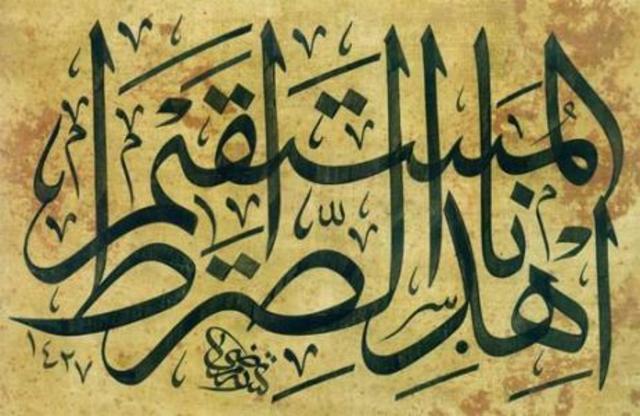 اهدنا الصرط
المستقيم
١٤٢٧